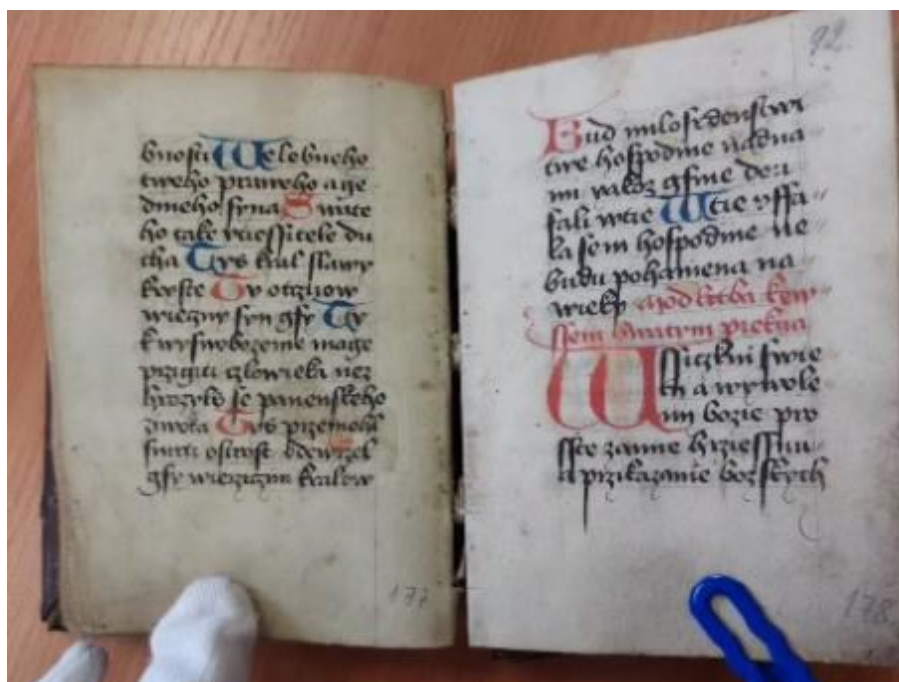 bnosti Welebneho
tweho praweho a ge
dineho syna Swate
ho take vtiessitele du
cha Tys kral slawy
kryste Ty otczuow
wieczny syn gsy Ty
k wyswobozenie mage
przigiti czlowieka nez
hrozyls se panenskeho
ziwota Tys przemoha
smrti ostrost odewrzel
gsy wierziczim kralow
177
92
Bud milosrdenstwi
twe hospodine nadna
mi yakoz gsme dou
fali wtie Wtie vffa
la sem hospodine ne
budu pohaniena na
wieky Modlitba kew
ssem swatym piekna
Wssiczkni swie
ti a wywole
ni bozie pro
sste zamie hrziessnu
a przikazanie bozskych
178